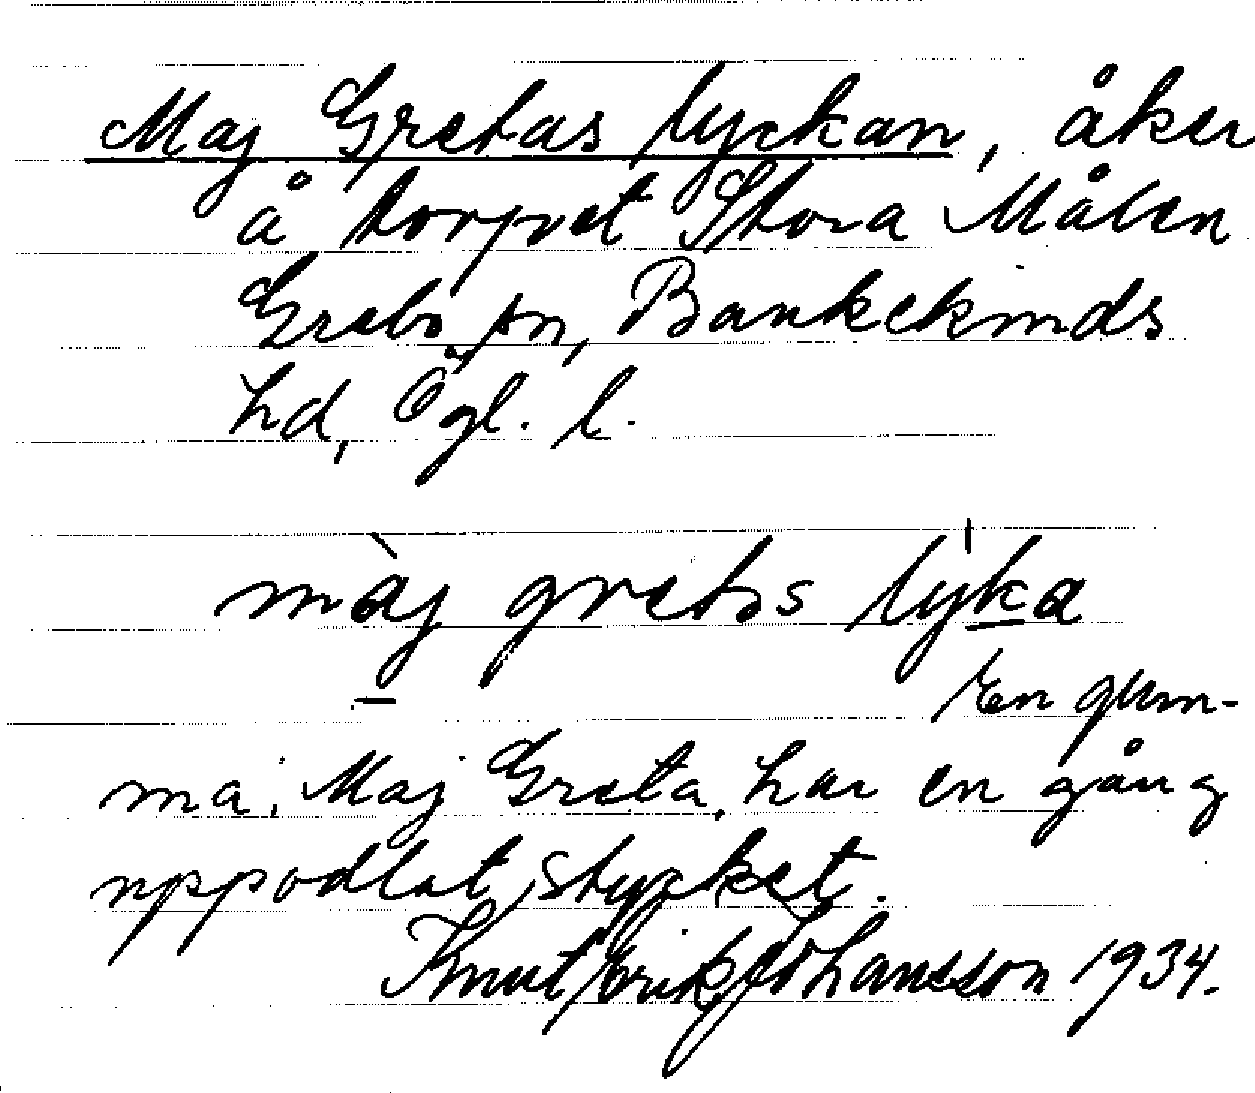 Maj Gretas lyckan, åker
å torpet Stora Målen
Grebo sn, Bankekinds
hd, Ögl. l.
màj gretas lyka
En gum-
ma, Maj Greta, har en gång
uppodlat stycket.
Knut Erik Johansson 1934.